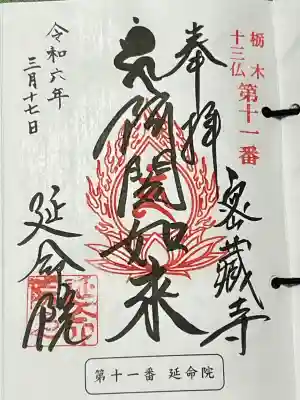 栃木
十三仏 第十一番
奉拝
密蔵寺
阿閦如来
令和六年
三月十七日
延命院
第十一番 延命院